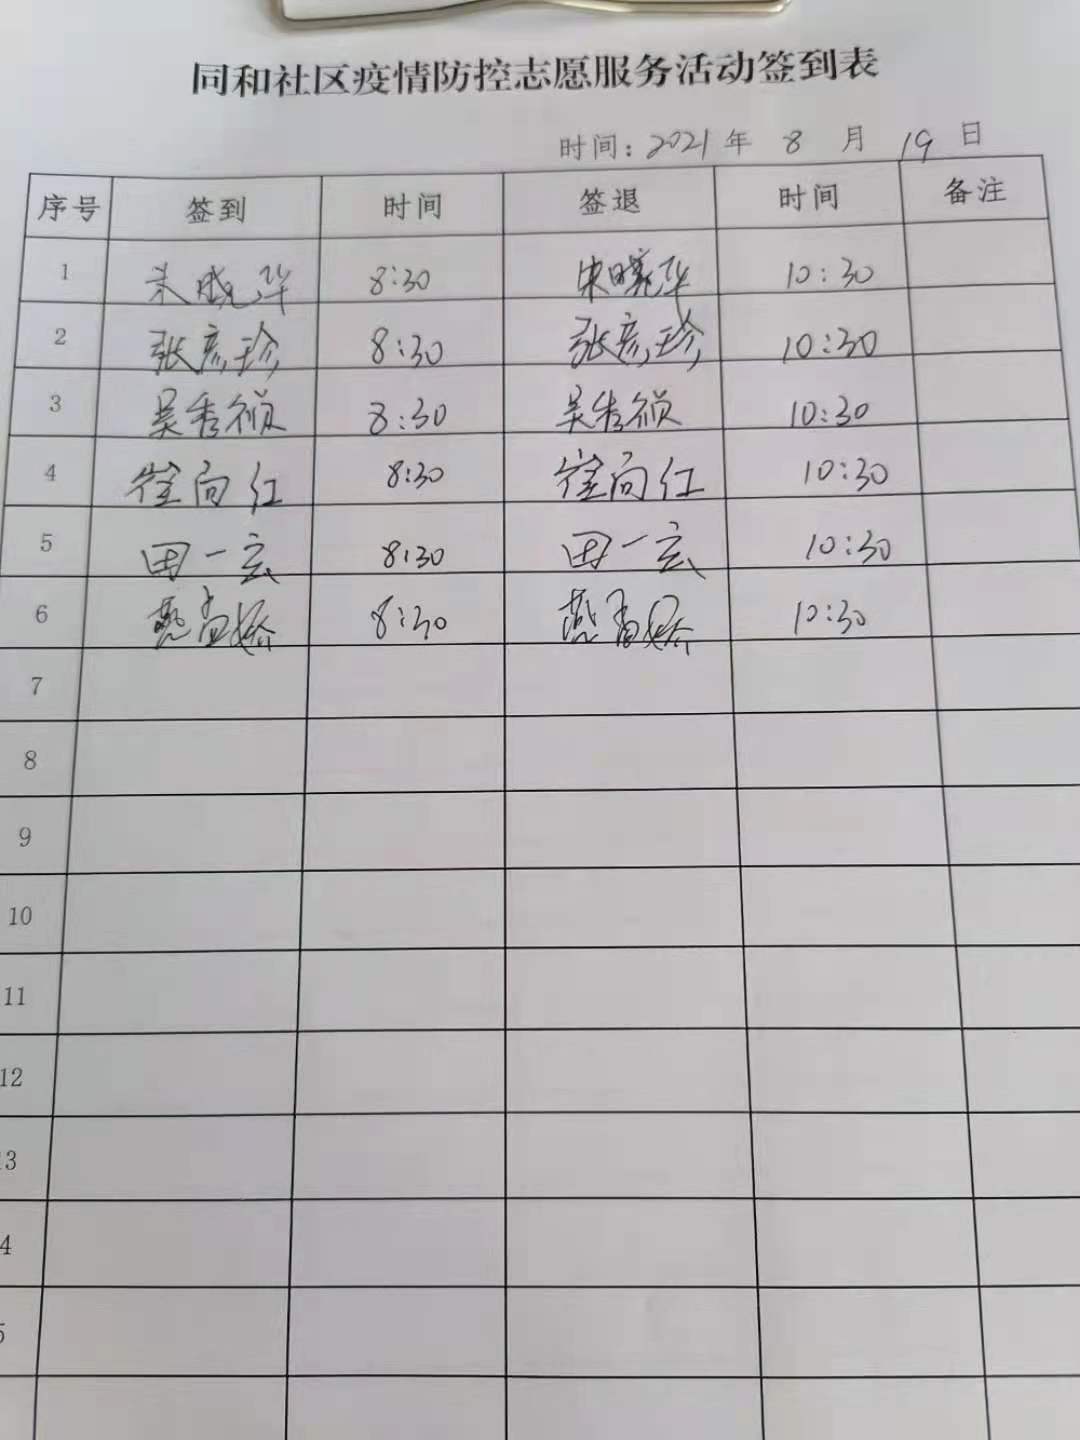 同和社区疫情防控志愿服务活动签到表
时间：2021年 8 月 19 日
序号 签到 时间 签退 时间 备注
1 朱晓华 8:30 朱晓华 10:30
2 张彦珍 8:30 张彦珍 10:30
3 吴秀祯 8:30 吴秀祯 10:30
4 崔向红 8:30 崔向红 10:30
5 田一玄 8:30 田一玄 10:30
6 8:30 10:30
7
8
9
10
11
12
13
4
5